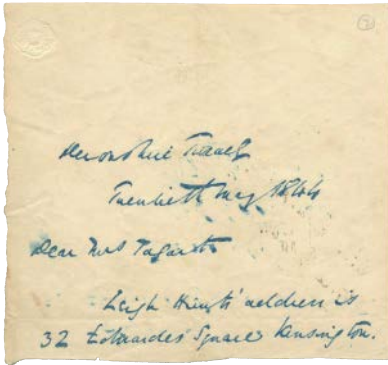 Devonshire Terrace
Twentieth May 1844
Dear Mrs Tagart.
Leigh Hunt's address is
32 Edwardes Square Kensington.